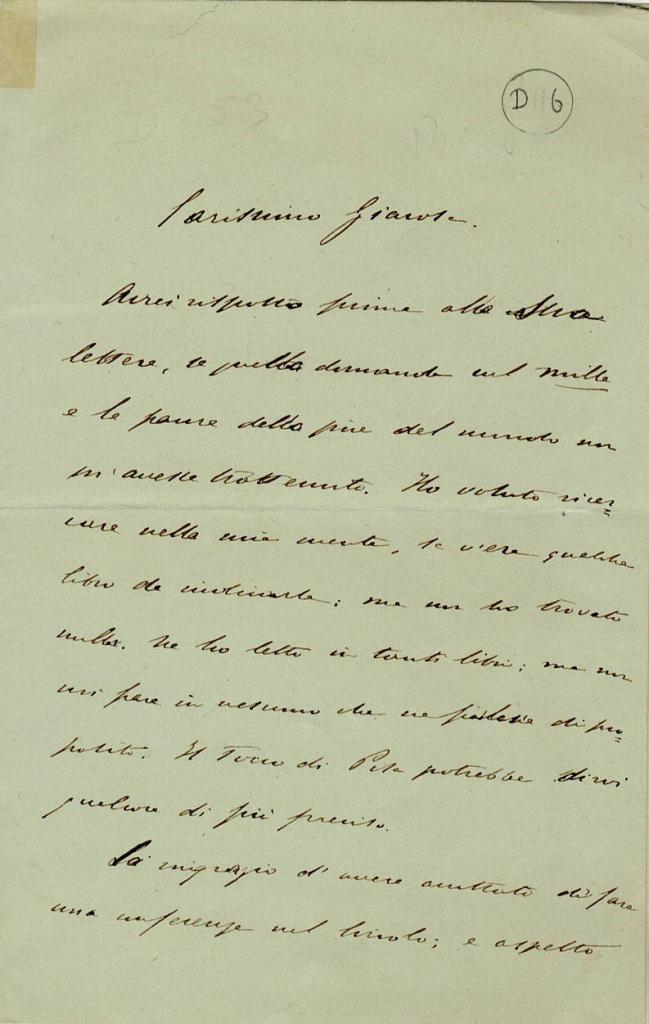 D 116
Carissimo Giacosa.
Avrei risposto prima alla Sua
lettera, se quella domanda sul mille
e le paure della fine del mondo non
mi avesse trattenuto. Ho voluto ricer-
care nella mia mente, se v'era qualche
libro da indicarle; ma non ho trovato
nulla. Ne ho letto in tanti libri; ma non
mi pare in nessuno che ne parlasse di pro-
posito. Il Tocco di Pisa potrebbe dirvi
qualcosa di più preciso.
La ringrazio d'avere accettato di fare
una conferenza nel Circolo; e aspetto